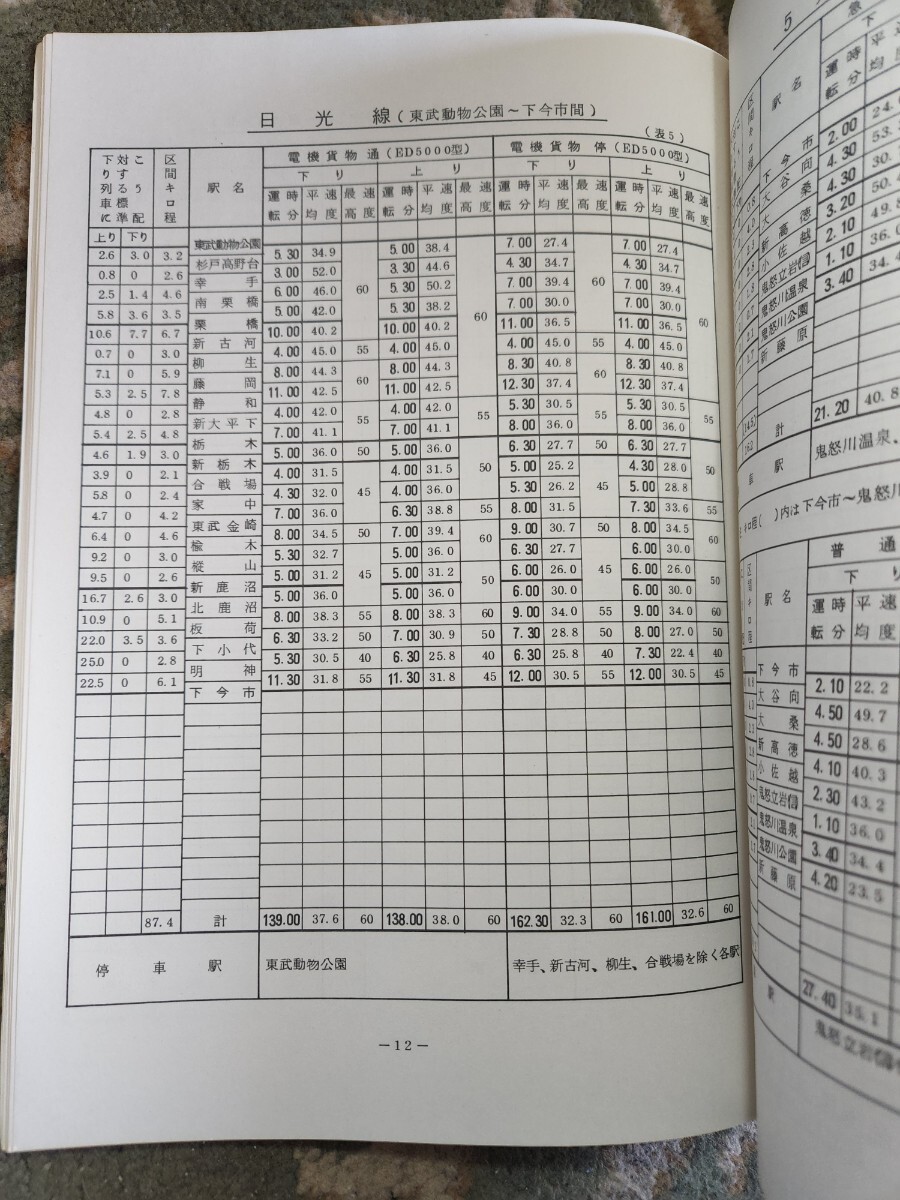 日光線(東武動物公園～下今市間)
(表5)
下り列車に対する標準こう配 区間キロ程 駅名 電機貨物通(ED5000型) 電機貨物停(ED5000型)
下り 上り 下り 上り
運転時分 平均速度 最高速度 運転時分 平均速度 最高速度 運転時分 平均速度 最高速度 運転時分 平均速度 最高速度
上り 下り
東武動物公園
2.6 3.0 3.2 5.30 34.9 5.00 38.4 7.00 27.4 7.00 27.4
杉戸高野台
0.8 0 2.6 3.00 52.0 3.30 44.6 4.30 34.7 4.30 34.7
幸手
2.5 1.4 4.6 6.00 46.0 60 5.30 50.2 7.00 39.4 60 7.00 39.4
南栗橋
5.8 3.6 3.5 5.00 42.0 5.30 38.2 60 7.00 30.0 7.00 30.0 60
栗橋
10.6 7.7 6.7 10.00 40.2 10.00 40.2 11.00 36.5 11.00 36.5
新古河
0.7 0 3.0 4.00 45.0 55 4.00 45.0 4.00 45.0 55 4.00 45.0
柳生
7.1 0 5.9 8.00 44.3 60 8.00 44.3 8.30 40.8 60 8.30 40.8
藤岡
5.3 2.5 7.8 11.00 42.5 11.00 42.5 12.30 37.4 12.30 37.4
静和
4.8 0 2.8 4.00 42.0 55 4.00 42.0 55 5.30 30.5 55 5.30 30.5 55
新大平下
5.4 2.5 4.8 7.00 41.1 7.00 41.1 8.00 36.0 8.00 36.0
栃木
4.6 1.9 3.0 5.00 36.0 50 5.00 36.0 6.30 27.7 50 6.30 27.7
新栃木
3.9 0 2.1 4.00 31.5 45 4.00 31.5 50 5.00 25.2 45 4.30 28.0 50
合戦場
5.8 0 2.4 4.30 32.0 4.00 36.0 5.30 26.2 5.00 28.8
家中
4.7 0 4.2 7.00 36.0 6.30 38.8 55 8.00 31.5 7.30 33.6 55
東武金崎
6.4 0 4.6 8.00 34.5 50 7.00 39.4 60 9.00 30.7 50 8.00 34.5 60
楡木
9.2 0 3.0 5.30 32.7 45 5.00 36.0 6.30 27.7 45 6.00 30.0
樅山
9.5 0 2.6 5.00 31.2 5.00 31.2 50 6.00 26.0 6.00 26.0 50
新鹿沼
16.7 2.6 3.0 5.00 36.0 5.00 36.0 6.00 30.0 6.00 30.0
北鹿沼
10.9 0 5.1 8.00 38.3 55 8.00 38.3 60 9.00 34.0 55 9.00 34.0 60
板荷
22.0 3.5 3.6 6.30 33.2 50 7.00 30.9 50 7.30 28.8 50 8.00 27.0 50
下小代
25.0 0 2.8 5.30 30.5 40 6.30 25.8 40 6.30 25.8 40 7.30 22.4 40
明神
22.5 0 6.1 11.30 31.8 55 11.30 31.8 45 12.00 30.5 55 12.00 30.5 45
下今市
87.4 計 139.00 37.6 60 138.00 38.0 60 162.30 32.3 60 161.00 32.6 60
停車駅 東武動物公園 幸手、新古河、柳生、合戦場を除く各駅
－12－
駅名 運転時分
下今市
2.00
大谷向
4.30
大桑
4.30
新高徳
3.20
小佐越
1.10 36.0
3.40 34.4
鬼怒川温泉
鬼怒川公園
新藤原
計 21.20 40.8
鬼怒川温泉、
)内は下今市～鬼怒川
普通
下り
駅名 運転時分 平均速度
下今市
2.10 22.2
大谷向
4.50 49.7
大桑
4.50 28.6
新高徳
4.10 40.3
小佐越
2.30 43.2
1.10 36.0
鬼怒川温泉
3.40 34.4
鬼怒川公園
4.20 23.5
新藤原
27.40 35.1